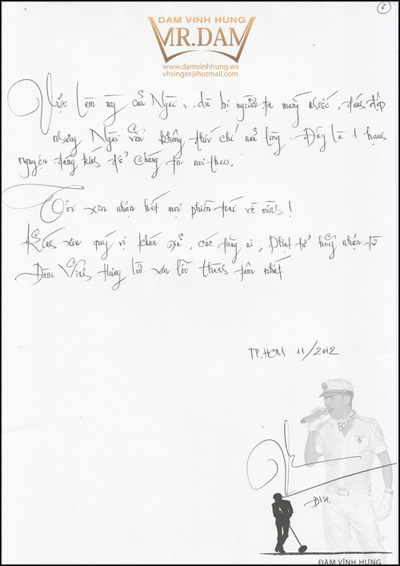 6
ĐÀM VĨNH HƯNG
MR.DAM
www.damvinhhung.ws
vhsinger@hotmail.com
Việc làm này của Ngài, dù bị người ta mắng nhiếc, đánh đập
nhưng Ngài vẫn không thối chí nản lòng. Đây là 1 hạnh
nguyện đáng kính để chúng ta noi theo.
Tôi xin nhận hết mọi phiền toái về mình!
Kính xin quý vị khán giả, các tăng ni, Phật tử hãy nhận từ
Đàm Vĩnh Hưng lời xin lỗi thành tâm nhất
TP.HCM 11/2012
ĐVH
ĐÀM VĨNH HƯNG